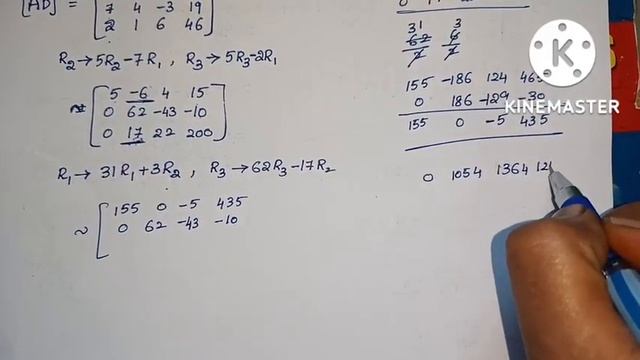 [AD] = [ 7 4 -3 19
2 1 6 46 ]
R₂→5R₂-7R₁ , R₃→5R₃-2R₁
~ [ 5 -6 4 15
0 62 -43 -10
0 17 22 200 ]
R₁→31R₁+3R₂ , R₃→62R₃-17R₂
~ [ 155 0 -5 435
0 62 -43 -10
31 3
62 6
2 2
155 -186 124 465
0 186 -129 -30
155 0 -5 435
0 1054 1364 121
K
KINEMASTER